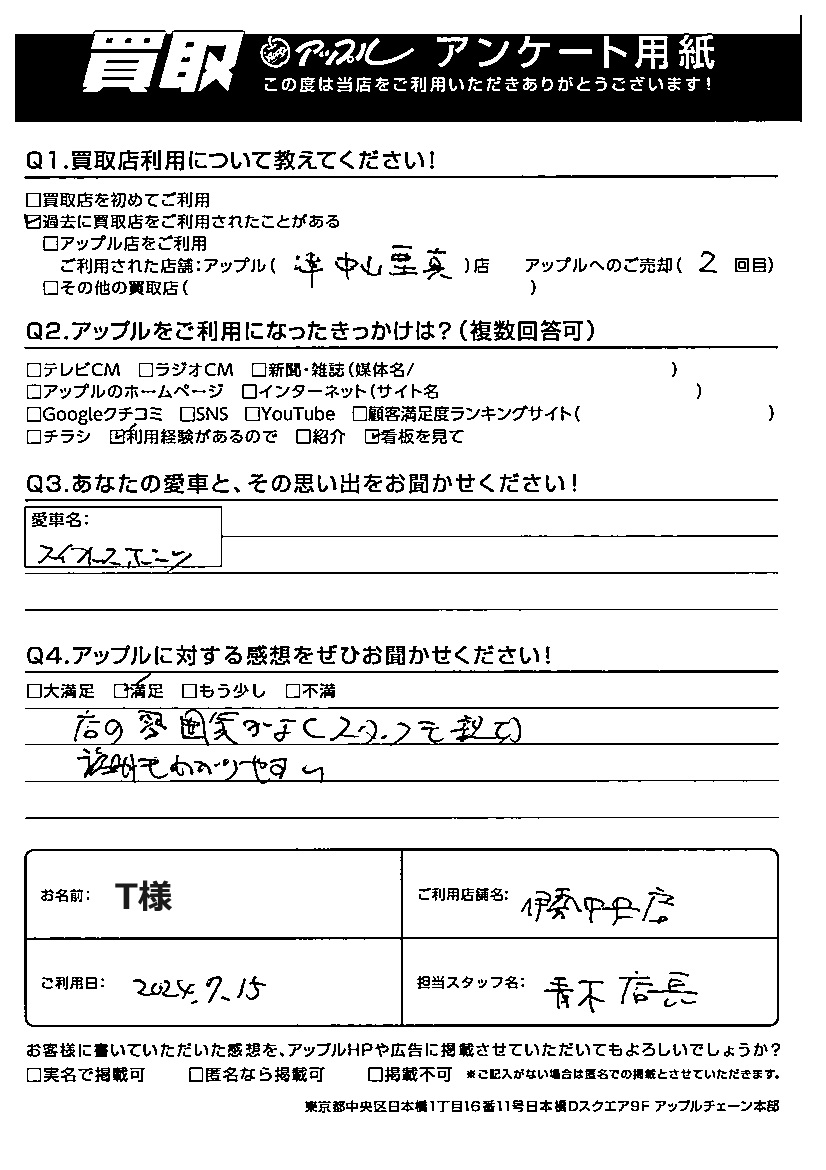 買取 アップル アンケート用紙
この度は当店をご利用いただきありがとうございます!
Q1.買取店利用について教えてください!
□買取店を初めてご利用
☑過去に買取店をご利用されたことがある
□アップル店をご利用
ご利用された店舗:アップル( 津中山亜真 )店 アップルへのご売却( 2 回目)
□その他の買取店( )
Q2.アップルをご利用になったきっかけは?(複数回答可)
□テレビCM □ラジオCM □新聞・雑誌(媒体名/ )
□アップルのホームページ □インターネット(サイト名 )
□Googleクチコミ □SNS □YouTube □顧客満足度ランキングサイト( )
□チラシ ☑利用経験があるので □紹介 ☑看板を見て
Q3.あなたの愛車と、その思い出をお聞かせください!
愛車名:
スイフトスポーツ
Q4.アップルに対する感想をぜひお聞かせください!
□大満足 ☑満足 □もう少し □不満
店の雰囲気がよくスタッフも親切
説明もわかりやすい
お名前: T様 ご利用店舗名: 伊勢中央店
ご利用日: 2024.7.15 担当スタッフ名: 青木店長
お客様に書いていただいた感想を、アップルHPや広告に掲載させていただいてもよろしいでしょうか?
□実名で掲載可 □匿名なら掲載可 □掲載不可 ※ご記入がない場合は匿名での掲載とさせていただきます。
東京都中央区日本橋1丁目16番11号日本橋Dスクエア9F アップルチェーン本部